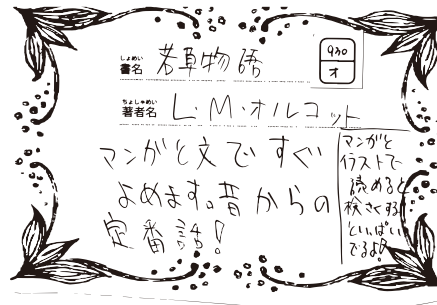 しょめい
書名 若草物語
930
オ
ちょしゃめい
著者名 L・M・オルコット
マンガと文ですぐ
よめます。昔からの
定番話!
マンガと
イラストで
読めると
検さくする
といっぱい
でるよ!